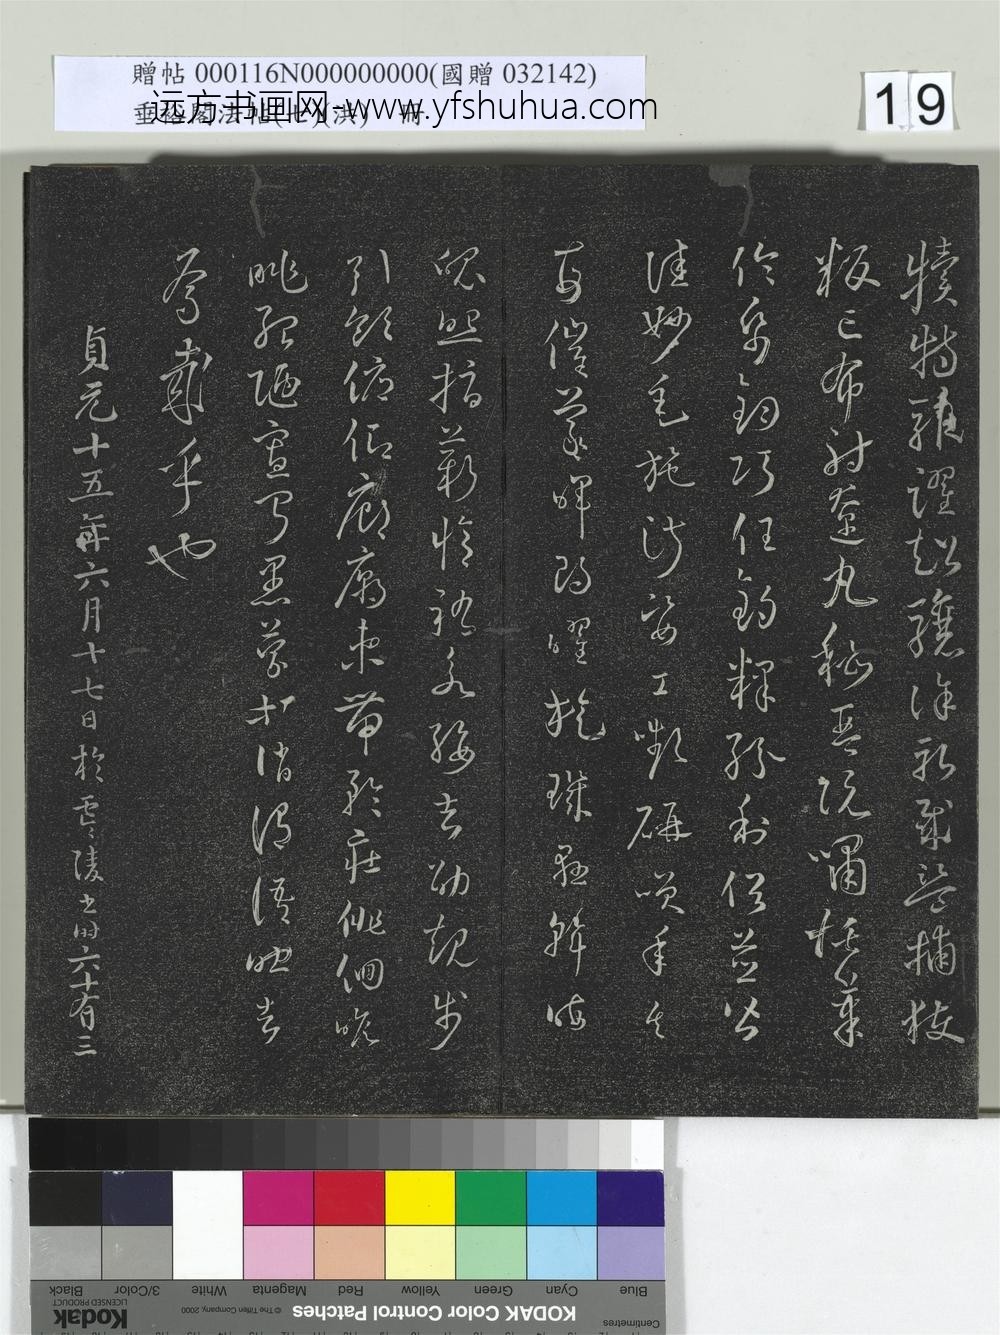 贈帖 000116N000000000(國贈 032142)
远方书画网-www.yfshuhua.com
19
犢特駭躍超驤誅斬賊盜捕獲
叛亡布射遼丸嵇琴阮嘯恬筆
倫紙鈞巧任釣釋紛利俗並皆
佳妙毛施淑姿工顰妍笑年矢
每催羲暉朗曜旋璣懸斡晦
魄照指薪脩祜永綏吉劭矩步
引領俯仰廊廟束帶矜莊徘徊瞻
眺孤陋寡聞愚蒙等誚謂語助者
焉哉乎也
貞元十五年六月十七日於零陵書時六十有三
Centimetres
KODAK Color Control Patches
© The Tiffen Company, 2000
Kodak
LICENSED PRODUCT
Blue Cyan Green Yellow Red Magenta White 3/Color Black